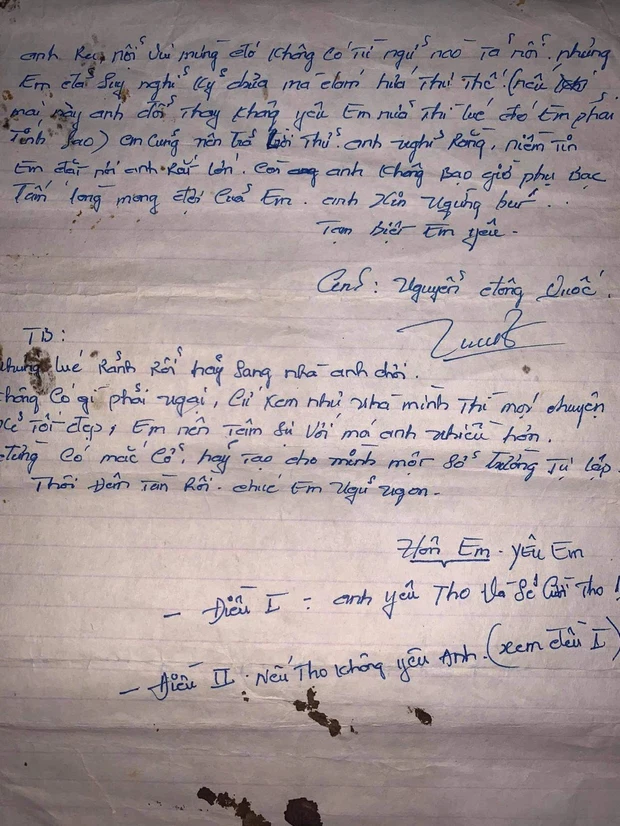 anh kể, nỗi vui mừng đó không có từ ngữ nào tả nổi. nhưng
Em đã suy nghĩ kỹ chưa mà dám hứa thứ thế. (nếu
mai này anh đổi thay không yêu Em nữa thì lúc đó Em phải
tính sao) em cũng nên trả lời thử. anh nghĩ rằng, niềm tin
Em đối với anh rất lớn. Còn anh không bao giờ phụ bạc
tấm lòng mong đợi của Em. anh xin ngừng bút..
Tạm biệt Em yêu.
Nguyễn đông Quốc.
TB:
những lúc rảnh rỗi hãy sang nhà anh chơi.
không có gì phải ngại, cứ xem như nhà mình thì mọi chuyện
sẽ tốt đẹp, Em nên tâm sự với má anh nhiều hơn.
đừng có mắc cỡ, hãy tạo cho mình một sở trường tự lập.
Thôi đêm tàn rồi. chúc Em ngủ ngon.
Hôn Em - yêu Em
- Điều I = anh yêu Tho và sẽ cưới Tho!
- Điều II. nếu Tho không yêu Anh. (xem điều I)